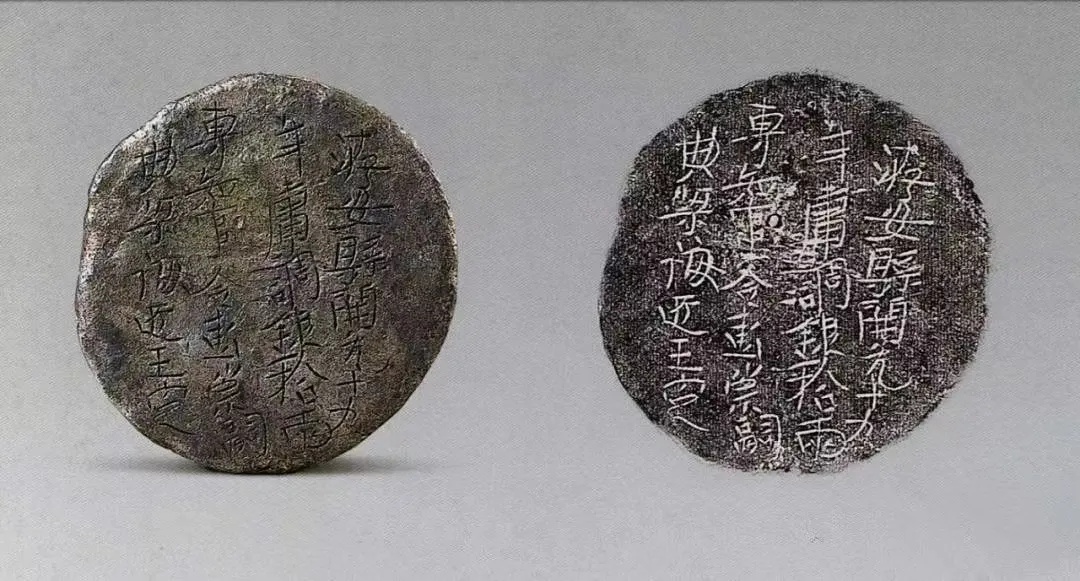 洊安縣開元十九
年庸調銀拾兩
專知官令彭崇嗣
典梁海匠王定
洊安縣開元十九
年庸調銀拾兩
專知官令彭崇嗣
典梁海匠王定